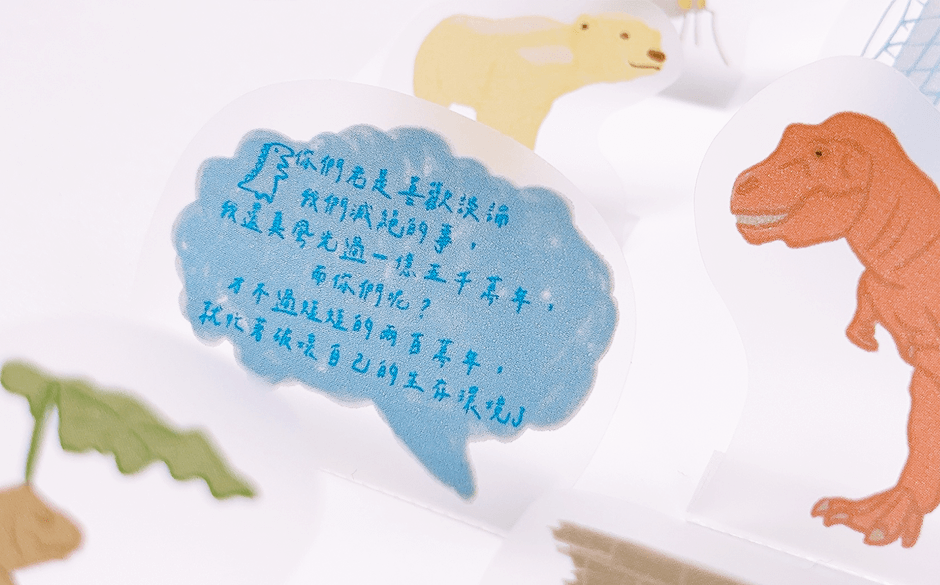 「你們老是喜歡談論
我們滅絕的事，
我這真風光過一億五千萬年，
而你們呢？
才不過短短的兩百萬年，
就忙著破壞自己的生存環境」